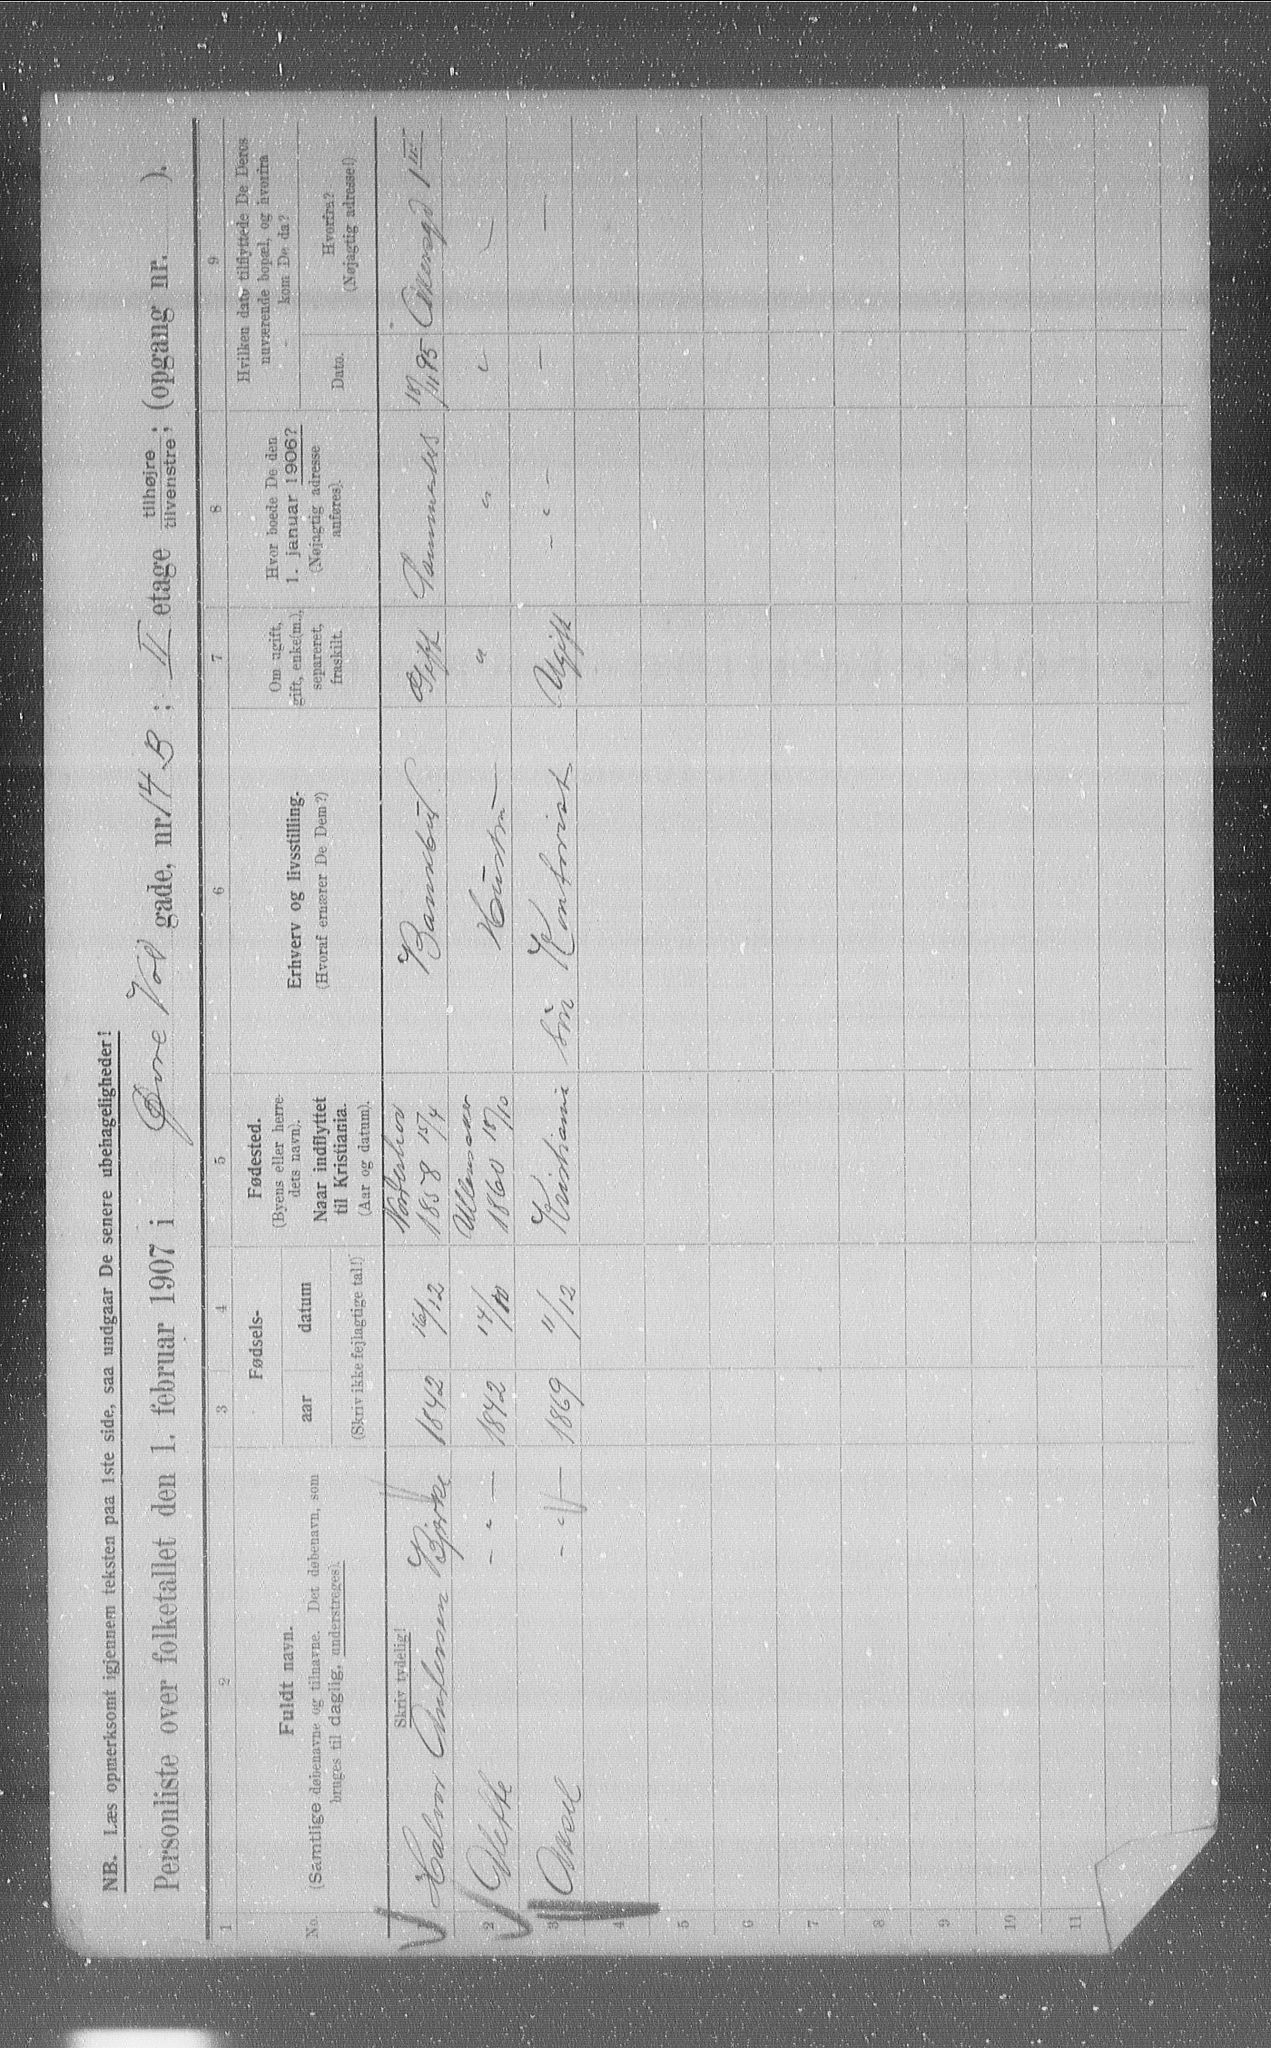 NB. Læs opmerksomt igjennem teksten paa 1ste side, saa undgaar De senere ubehageligheder!
Personliste over folketallet den 1. februar 1907 i Øvre Vold gade, nr. 14 B ; II etage tilhøjre, tilvenstre, (opgang nr. ).
1 2 3 4 5 6 7 8 9
No.
Fuldt navn.
(Samtlige døbenavne og tilnavne. Det døbenavn, som
bruges til daglig, understreges).
Fødsels-
aar datum
(Skriv ikke fejlagtige tal!)
Fødested.
(Byens eller herre-
dets navn).
Naar indflyttet
til Kristiania.
(Aar og datum).
Erhverv og livsstilling.
(Hvoraf ernærer De Dem?)
Om ugift,
gift, enke(m.),
separeret,
fraskilt.
Hvor boede De den
1. januar 1906?
(Nøjagtig adresse
anføres).
Hvilken dato tilflyttede De Deres
nuværende bopæl, og hvorfra
kom De da?
Dato.
Hvorfra?
(Nøjagtig adresse!)
Skriv tydelig!
Halvor Andersen Bjørke 1842 16/12 Norderhov 1858 15/4 Bankbud Gift Sammested 18/11 95 Akersgd 1
2 Olette - " - 1842 14/10 Ullensaker 1860 18/10 Hustru " " " —
3 Axel - " - 1869 11/12 Kristiania Søn Kontorist Ugift - " - — —
4
5
6
7
8
9
10
11